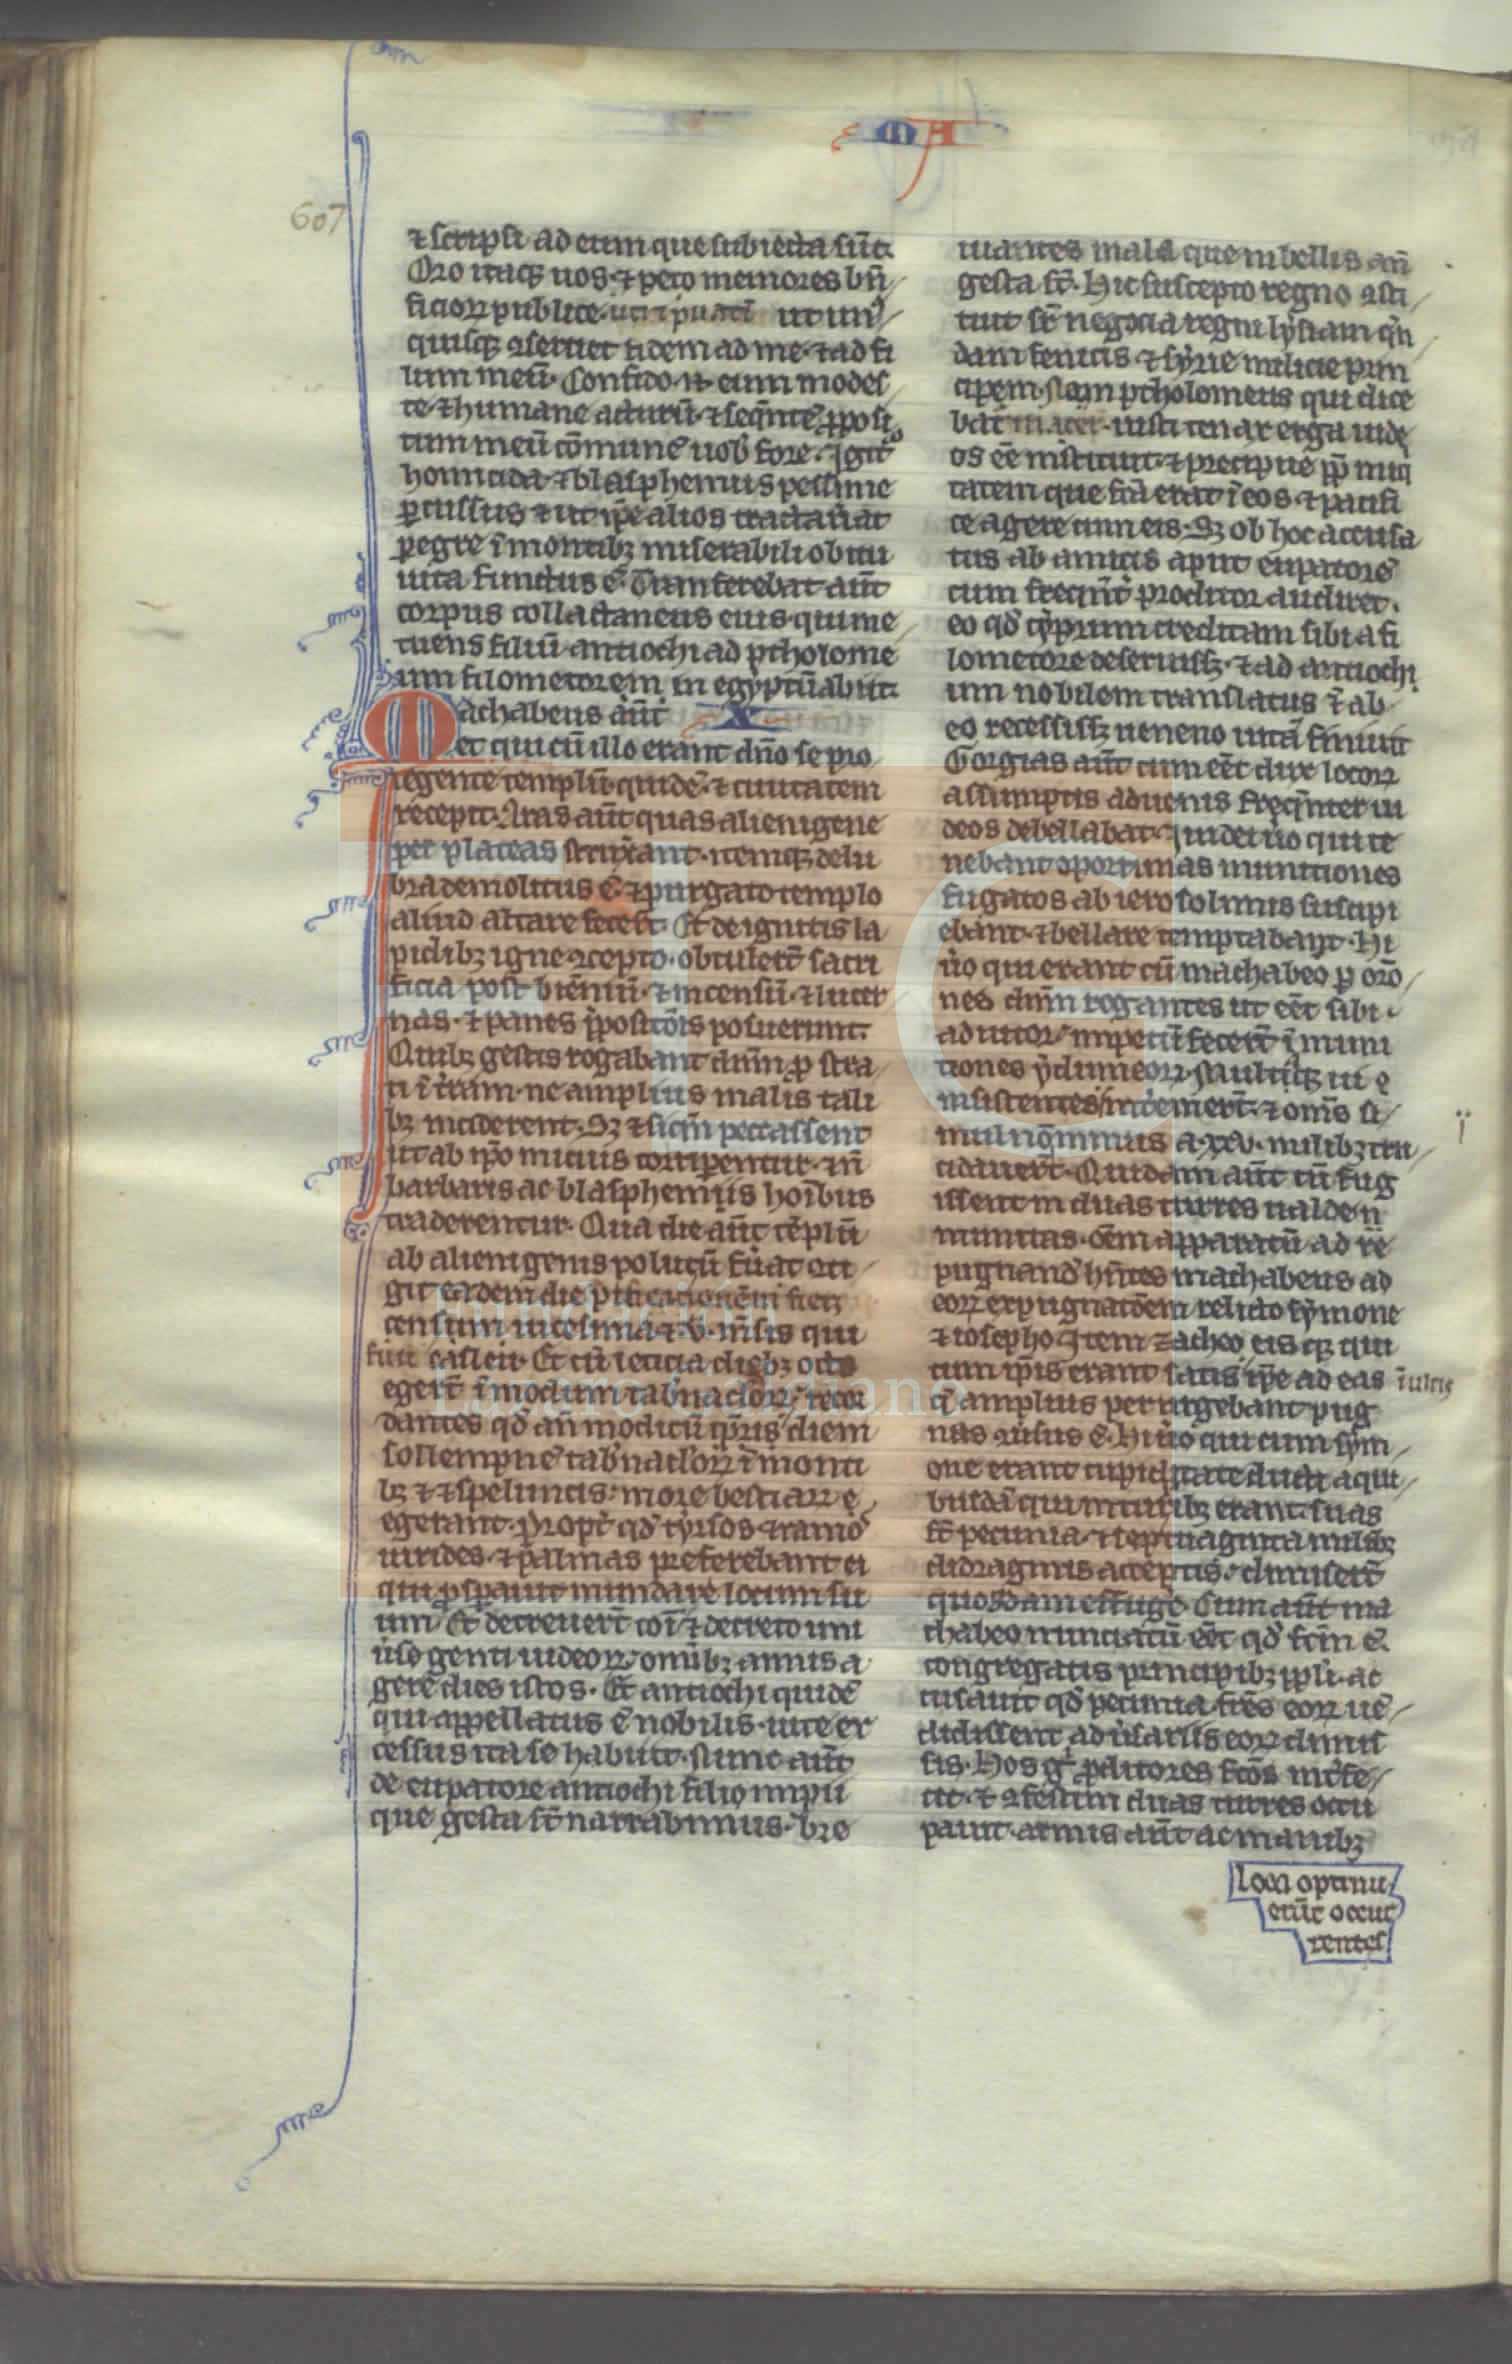 MA
607
⁊ scripsi ad eum que subiecta sūt.
Oro itaqꝫ uos ⁊ peto memores bn̄
ficioꝝ publice ut un᷒
quisqꝫ ꝯseruet fidem ad me ⁊ ad fi
lium meū. Confido .n. eum modes
te ⁊ humane acturū ⁊ seqn̄tē ꝓposi
tum meū cōmunē uob̄ fore. Igit᷑
homicida ⁊ blasphemus pessime
ꝑcussus ⁊ ut ip̄e alios tractau̓at
ꝑegre ī montibꝫ miserabili obitu
uita functus ē. Transferebat aūt
corpus collactaneus eius qui me
tuens filiū antiochi ad ptholome
um filometorem in egyptū abiit.
Machabeus aūt X
et qui cū illo erant dn̄o se pro
tegente templū quidē ⁊ ciuitatem
recepit. Aras aūt quas alienigene
per plateas struxant itemqꝫ delu
bra demolitus ē ⁊ purgato templo
aliud altare fecert. Et de ignitis la
pidibꝫ igne ꝯcepto obtulert̄ sacri
ficia post bienniū ⁊ incensū ⁊ lucer
nas ⁊ panes ꝓpositōis posuerunt.
Quibꝫ gestis rogabant dn̄m ꝓstra
ti ī t̓ram ne amplius malis tali
bꝫ inciderent. Sꝫ ⁊ si qn̄ peccassent
ut ab ip̄o mitius corriperentur ⁊ n̄
barbaris ac blasphemiis hoībus
traderentur. Qua die aūt tēplū
ab alienigenis polutū fu̓at ꝯti
git eadem die pͥficacionē fieri
censim uicesima ⁊ .v. mēsis qui
fuit casleu. Et cū leticia diebꝫ octo
egert̄ ī modum tabnacloꝝ recor
dantes qd̓ an̄ modicū tp̄ris diem
sollempnē tab̓nacloꝝ ī monti
bꝫ ⁊ ⁊ speluncis more bestiaꝝ
egerant. Propt̓ qd̓ tyrsos ⁊ ramos
uirides ⁊ palmas preferebant ei
qui ꝓsp̓auit mundare locum su
um. Et decreuert̄ coi̅ ⁊ decreto uni
u̓so genti iudeoꝝ omībꝫ annis a
gere dies istos. Et antiochi quidē
qui appellatus ē nobilis uite ex
cessus ita se habuit. Nunc aūt
de eupatore antiochi filio impii
que gesta st̄ narrabimus bre
uiantes mala que in bellis
gesta st̄. Hic suscepto regno ꝯsti
tuit sr̄ negocia regni lysiam qn̄
dam fenicis ⁊ syrie milicie prin
cipem. Nam ptholomeus qui dice
bat᷑ macer iusti tenax erga iude
os eē instituit ⁊ precipue ꝓp iniq
tatem que fcā erat ī eos ⁊ pacifi
ce agere cum eis. Sꝫ ob hoc accusa
tus ab amicis aput eupatorē
cum freqn̄t̓ proditor audiret
eo qd̓ cyprum creditam sibi a fi
lometore deseruissꝫ ⁊ ad antiochi
um nobilem translatus ⁊ ab
eo recessissꝫ ueneno uitā finiuit
Gorgias aūt cum eēt dux locoꝝ
assumptis aduenis freqn̄ter iu
deos debellabat. Iudei u̓o qui te
nebant oportunas municiones
fugatos ab ierosolimis suscipi
ebant ⁊ bellare temptabant. Hi
u̓o qui erant cū machabeo ꝑ orō
nes dn̄m rogantes ut eēt sibi
adiutor impetū fecert̄ ī muni
tiones ydumeoꝝ. Multaqꝫ ui
insistentes int̓emert̄ ⁊ om̄s si
mul nō minus a .xxv. milibꝫ tru
cidauert̄. Quidam aūt cū fug
issent in duas turres ualde
munitas om̄em apparatū ad re
pugnand̓ hn̄tes machabeus ad
eoꝝ expugnatōem relicto symone
⁊ iosepho Item zacheo eis qꝫ qui
cum ip̄is erant satis ip̄e ad eas ī ulris
q̄ amplius perurgebant pug
nas ꝯu̓sus ē. Hi u̓o qui cum sym
one erant cupiditate ducti a qui
busdā qui in turribꝫ erant suasi
st̄ pecunia ⁊ septuaginta milibꝫ
didragmis acceptis dimisert̄
quosdam effuge̓. Cum aūt ma
chabeo nunciatū eēt qd̓ fcm̄ ē
congregatis principibꝫ ppl̓i ac
cusauit qd̓ pecunia fr̄es eoꝝ uē
didissent adu̓sariis eoꝝ dimis
sis. Hos gͥ ꝓditores fcōs int̓fe
cit ⁊ ꝯfestim duas turres occu
pauit armis aūt ac manibꝫ
loca optinu
erūt occur
rentes